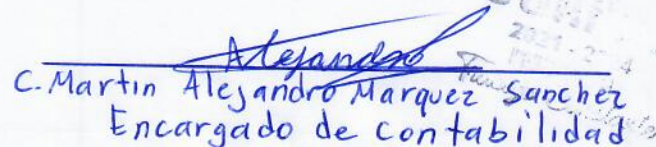 Alejandro
C. Martin Alejandro Marquez Sanchez
Encargado de contabilidad